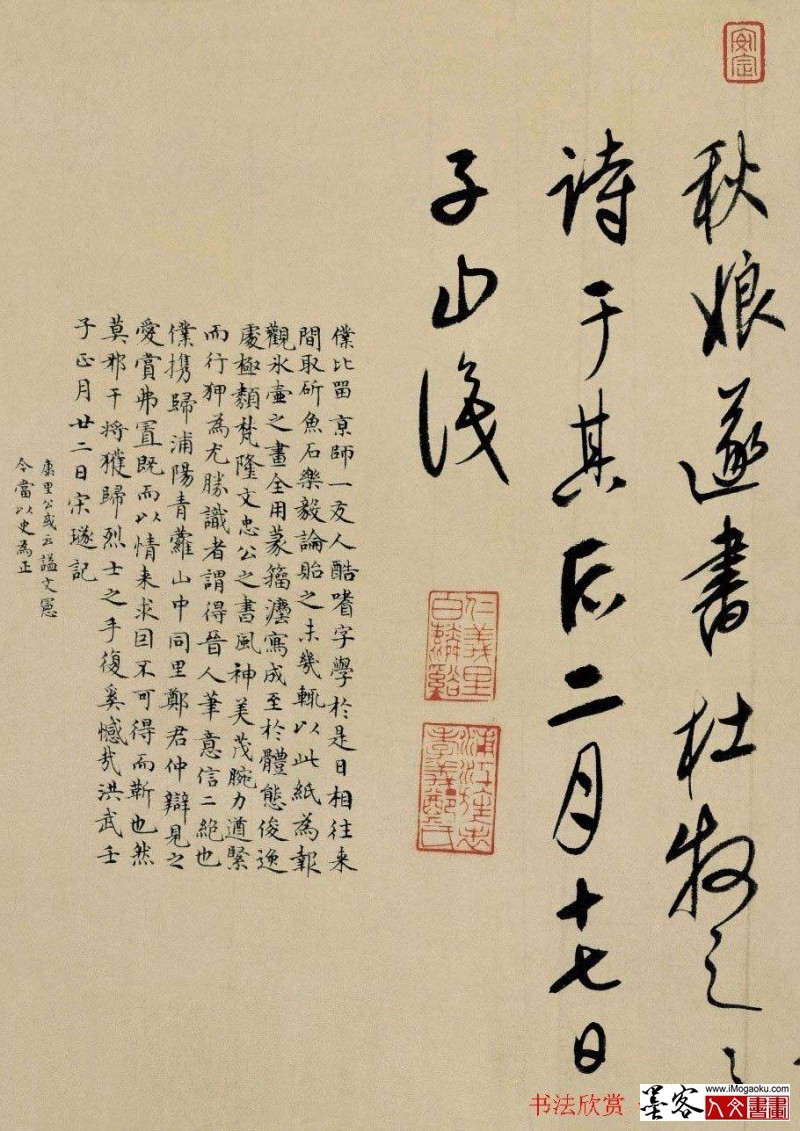 安定
秋娘遂書杜牧之之
詩于其后二月十七日
子山識
仁義里
白麟谿
浦江旌忠
孝義鄭氏
僕比留京師一友人酷嗜字學於是日相往来
間取斫魚石樂毅論貽之未幾輒以此紙為報
觀氷壷之畫全用篆籀瀍寫成至於體態俊逸
䖏極纇梵隆文忠公之書風神美茂腕力遒緊
而行狎為尤勝識者謂得晉人筆意信二絶也
僕携歸浦陽青蘿山中同里鄭君仲辯見之
愛賞弗置既而以情来求囙不可得而靳也然
莫邪干将獲歸烈士之手復奚憾㢤洪武壬
子正月廿二日宋璲記
康里公或云謚文憲
今當以史為正
书法欣赏
墨客
人文書畫
www.iMogaoku.com